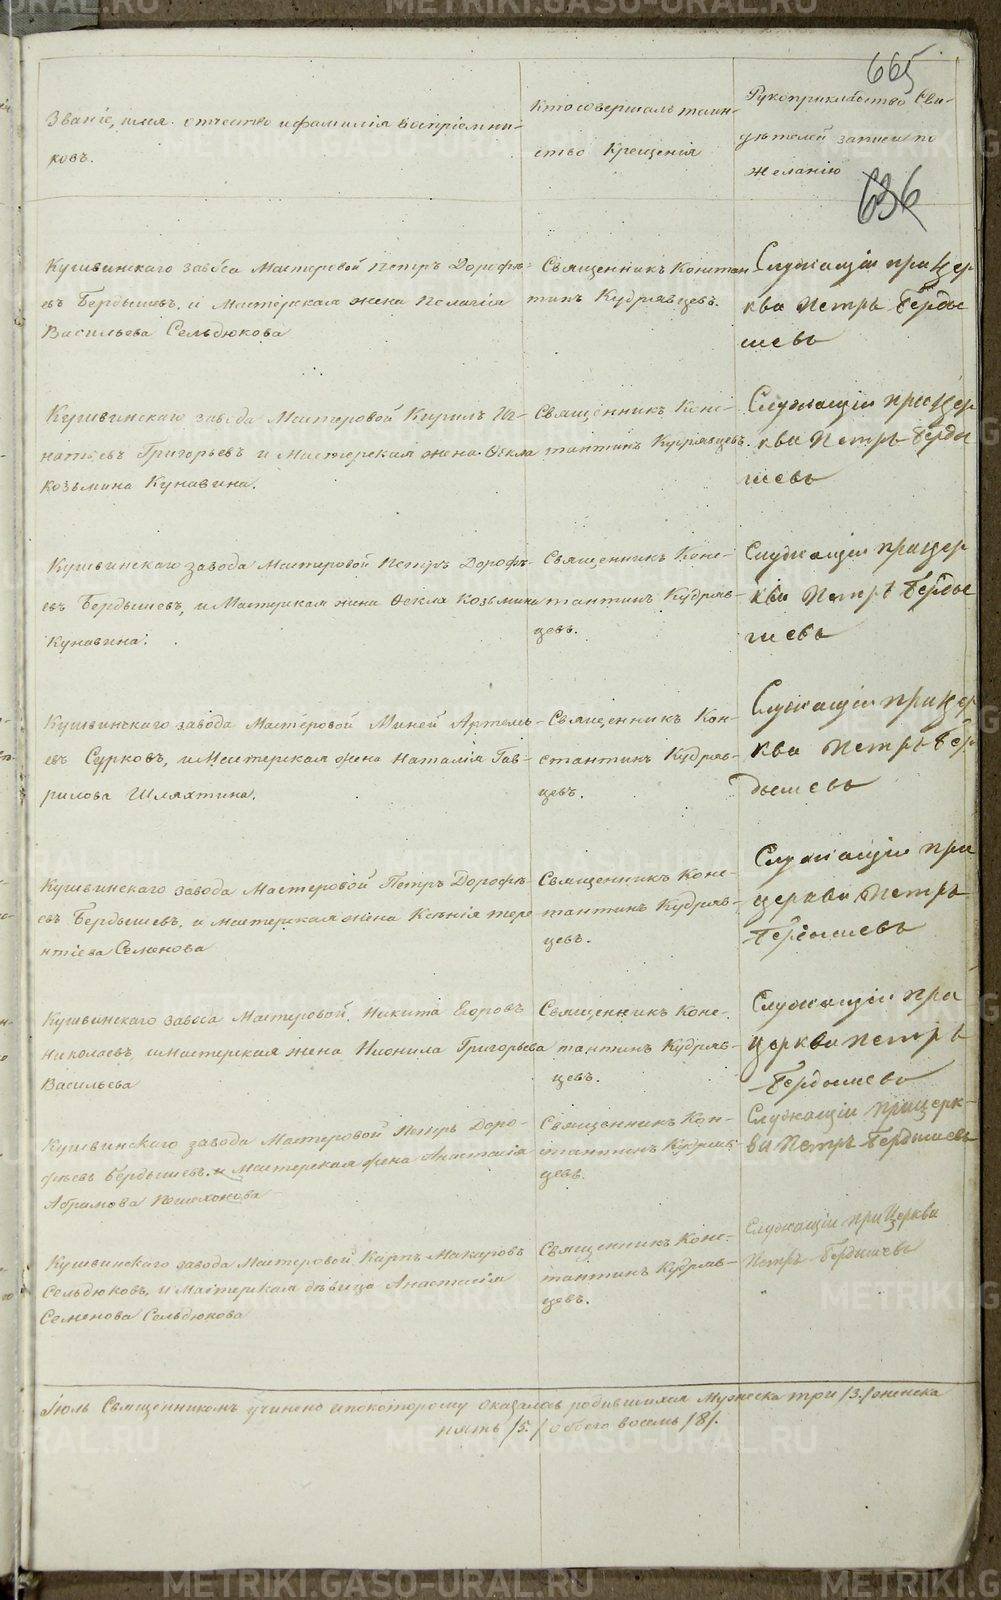 665
636
Званіе, имя отчество и фамилія воспріемни-
ковъ.
Кто совершалъ таин-
ство Крещенія
Рукоприкладство сви-
дѣтелей записи по
желанію
Кушвинскаго завода Мастеровой Петръ Дорофѣ-
евъ Бердышевъ, и Мастерская жена Пелагія
Васильева Сельдюкова
Священникъ Констан
тинъ Кудрявцевъ.
Служащій при цер
кви Петръ Берды
шевъ
Кушвинскаго завода Мастеровой Кирилъ Иг-
натьевъ Григорьевъ и Мастерская жена Ѳекла
Козьмина Кунавина.
Священникъ Конс-
тантинъ Кудрявцевъ.
Служащій при цер
кви Петръ Берды
шевъ
Кушвинскаго завода Мастеровой Петръ Дорофѣ-
евъ Бердышевъ, и Мастерская жена Ѳекла Козьмина
Кунавина.
Священникъ Конс-
тантинъ Кудряв-
цевъ.
Служащій при цер
кви Петръ Берды
шевъ
Кушвинскаго завода Мастеровой Миней Артемь-
евъ Сурковъ, и Мастерская жена Наталія Гав-
рилова Шляхтина.
Священникъ Кон-
стантинъ Кудряв-
цевъ.
Служащій при цер
кви Петръ Бер
дышевъ
Кушвинскаго завода Мастеровой Петръ Дорофѣ-
евъ Бердышевъ, и мастерская жена Ксенія Тере
нтіева Семенова
Священникъ Конс-
тантинъ Кудряв-
цевъ.
Служащій при
церкви Петръ
Бердышевъ
Кушвинскаго завода Мастеровой, Никита Егоровъ
Николаевъ, и мастерская жена Неонила Григорьева
Васильева
Священникъ Конс-
тантинъ Кудряв-
цевъ.
Служащій при
церкви Петръ
Бердышевъ
Кушвинскаго завода Мастеровой Петръ Доро-
фѣевъ Бердышевъ, и Мастерская жена Анастасія
Абрамова Пошехонова
Священникъ Кон-
стантинъ Кудряв
цевъ.
Служащій при церк-
ви Петръ Бердышевъ
Кушвинскаго завода Мастеровой Карпъ Макаровъ
Сельдюковъ, и Мастерская дѣвица Анастасія
Семенова Сельдюкова
Священникъ Конс-
тантинъ Кудряв-
цевъ.
Служащій при Церкви
Петръ Бердышевъ
Іюль Священникомъ учинено и по которому оказалось родившихся Мужеска три /3./ женска
пять /5./ обоего восемь /8/.
METRIKI.GASO-URAL.RU